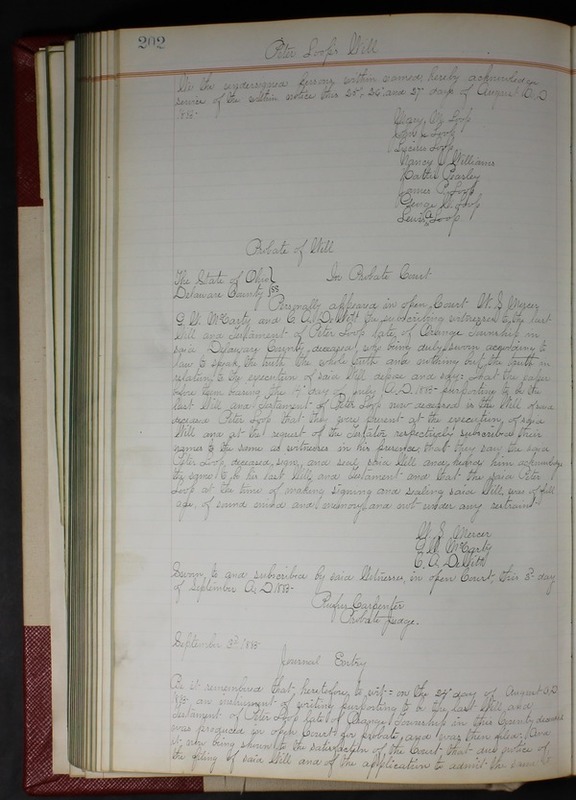 202
Peter Loop's Will
We the undersigned persons within named, hereby acknowledge
service of the within notice this 25", 26" and 27" days of August A.D
1885-
Mary M. Loop
Loop
Lucius Loop
Nancy J. Williams
Hattie Pearsley
James P. Loop
George W. Loop
Lewis Loop
Probate of Will
The State of Ohio } In Probate Court
Delaware County } ss
Personally appeared in open Court W. S. Mercer
G. W. McCarty and C. A. DeWitt the subscribing witnesses to the last
Will and Testament of Peter Loop late of Orange Township in
said Delaware County, deceased, who being duly sworn according to
law to speak the truth the whole truth and nothing but the truth in
relation to the execution of said Will depose and say: That the paper
before them bearing the day of July A.D. 1885- purporting to be the
last Will and Testament of Peter Loop now deceased is the Will of said
deceased Peter Loop that they were present at the execution of said
Will and at the request of the Testator respectively subscribed their
names to the same as witnesses in his presence that they saw the said
Peter Loop, deceased, sign, and seal said Will and heard him acknowledge
the same to be his last Will and Testament and that the said Peter
Loop at the time of making signing and sealing said Will was of full
age, of sound mind and memory and not under any restraint
W. S. Mercer
G. W. McCarty
C. A. DeWitt
Sworn to and subscribed by said Witnesses, in open Court, this 3d day
of September A.D 1885-
Rufus Carpenter
Probate Judge.
September 3d, 1885-
Journal Entry
Be it remembered that, heretofore, to wit:- on the 24" day of August A.D.
1885- an instrument of writing purporting to be the last Will and
Testament of Peter Loop late of Orange Township in this County, deceased
was produced in open Court for probate, and was then filed; And
it now being shown to the satisfaction of the Court that due notice of
the filing of said Will and of the application to admit the same to